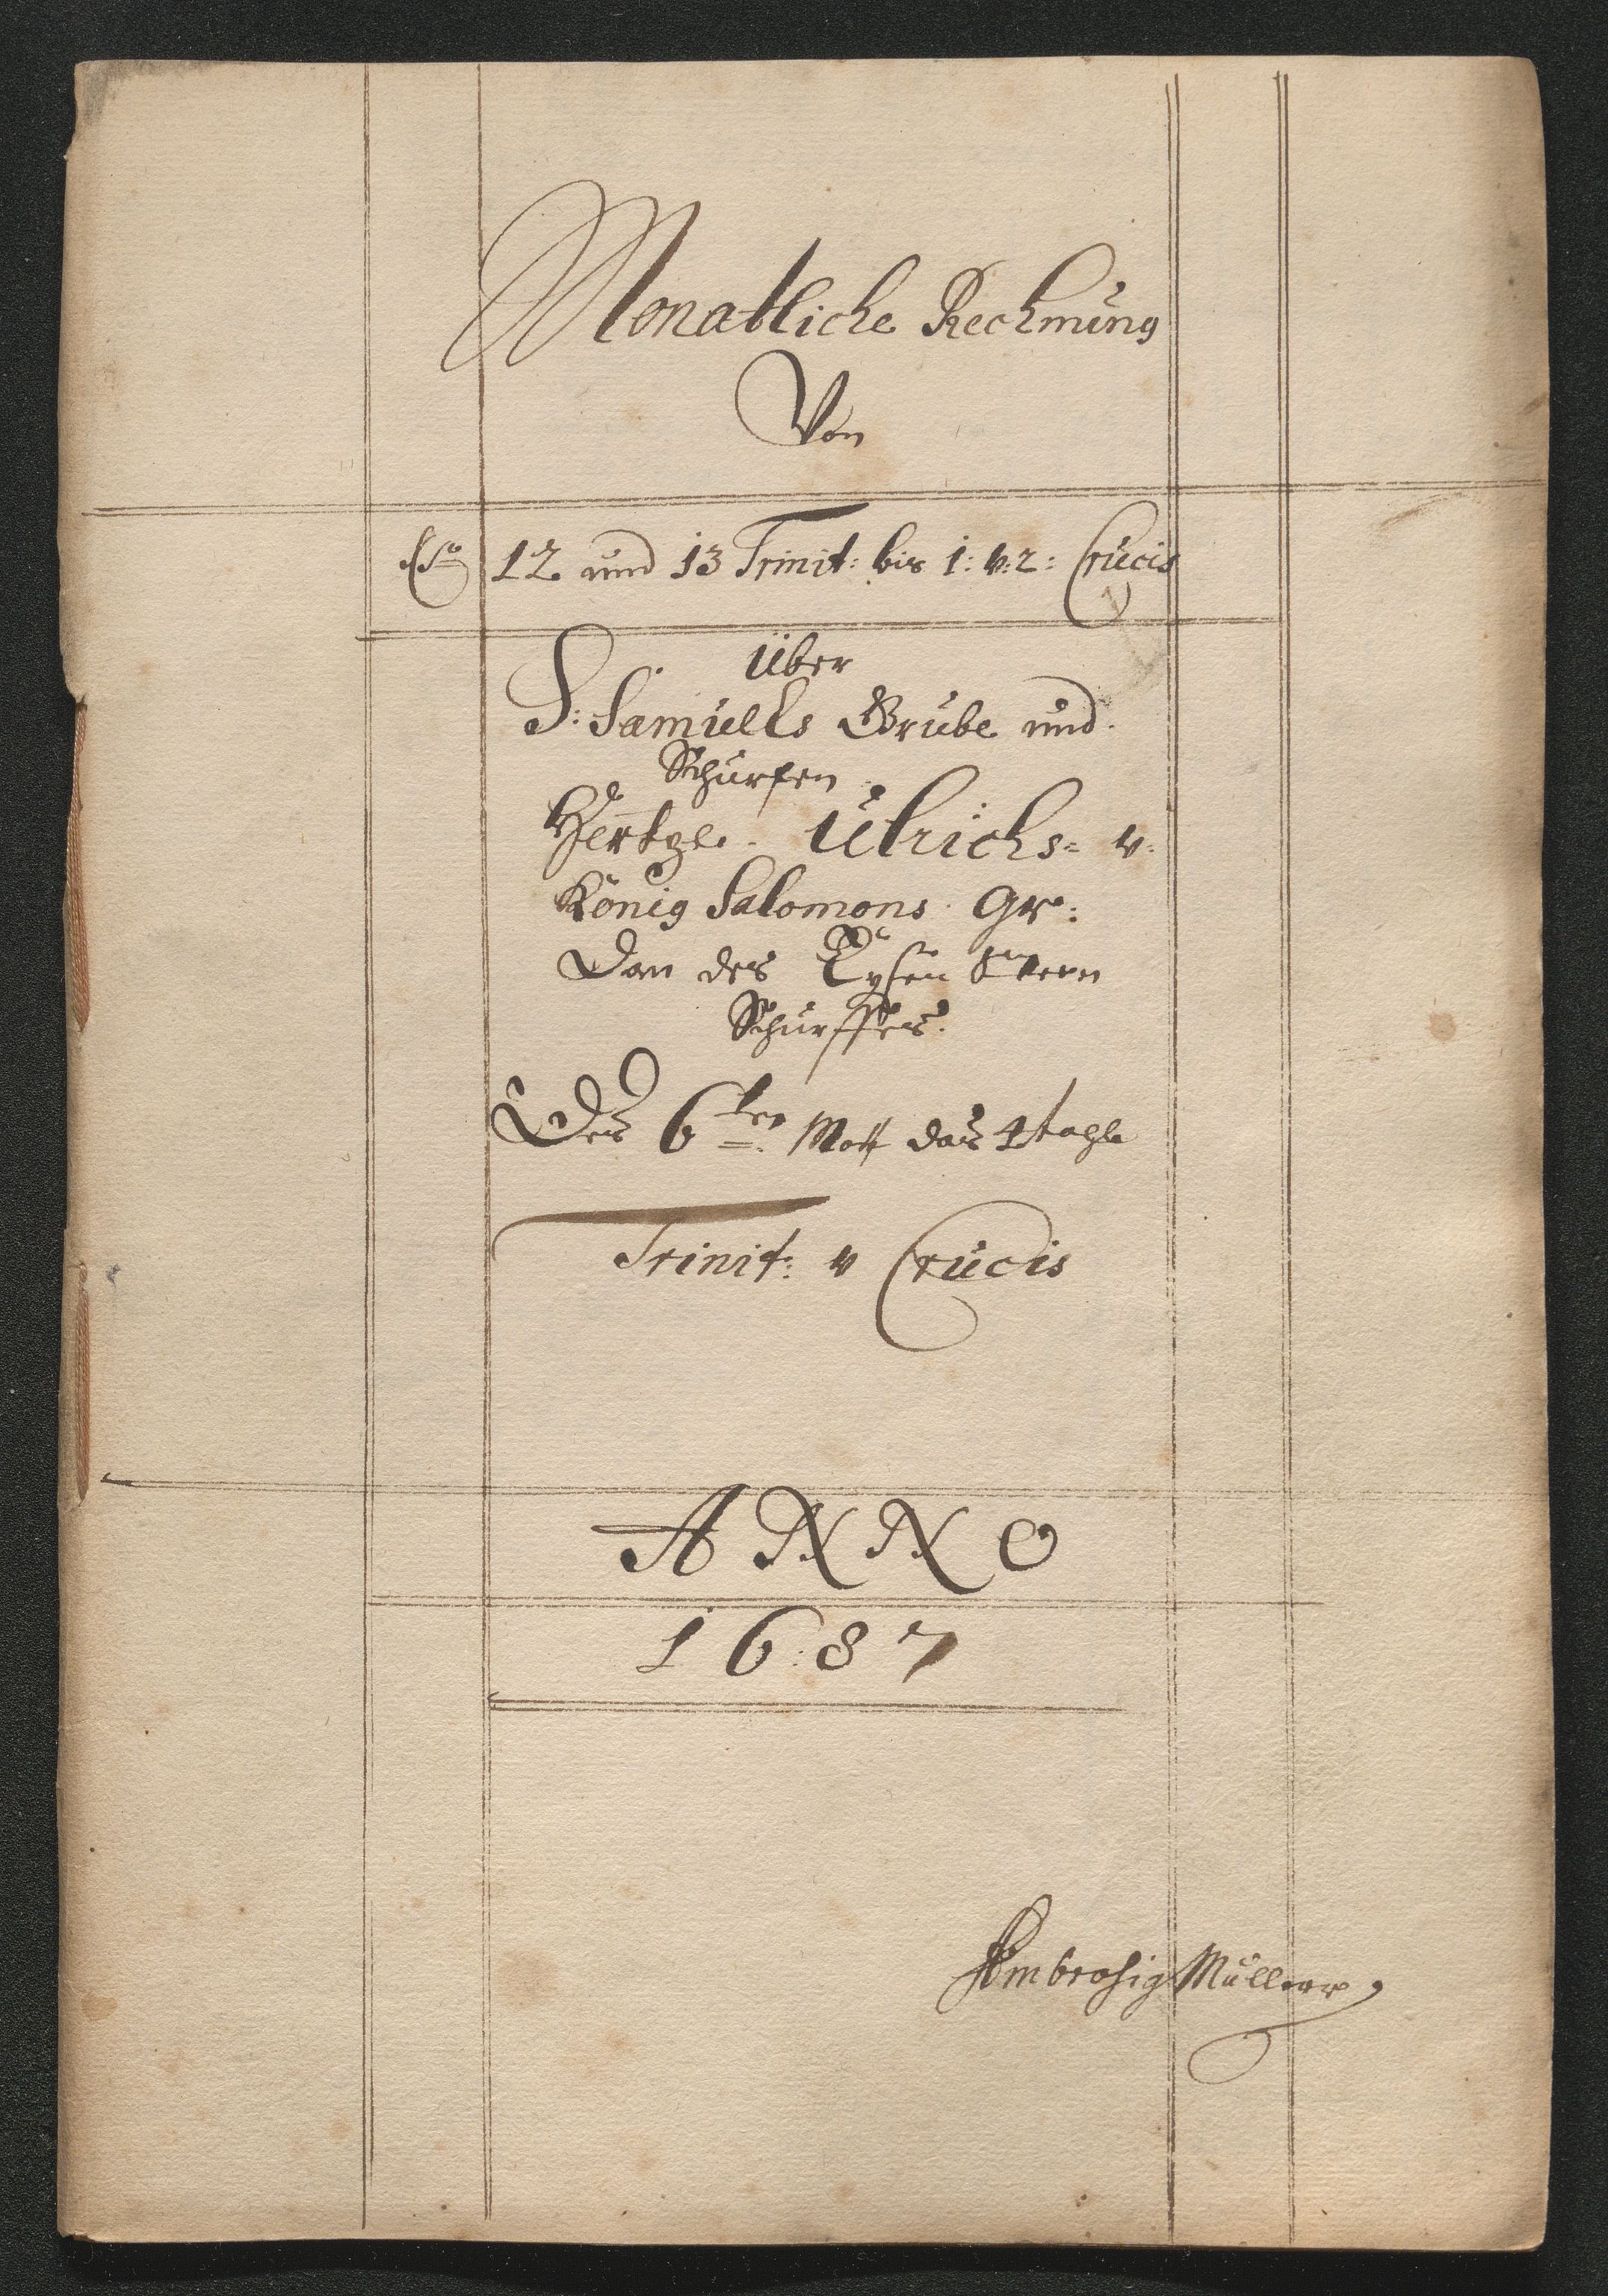 Monatliche Rechnung
Von
No 12 und 13 Trinit: bis 1: v: 2: Crucis
Über
S: Samuells Grube und
Schürfen
Hertzg. Ulrichs= v:
König Salomons Gr:
Dan des
Schürffes.
Des 6ten Mott das
Trinit: v Crucis
ANNO
1687
Ambrosig Müller